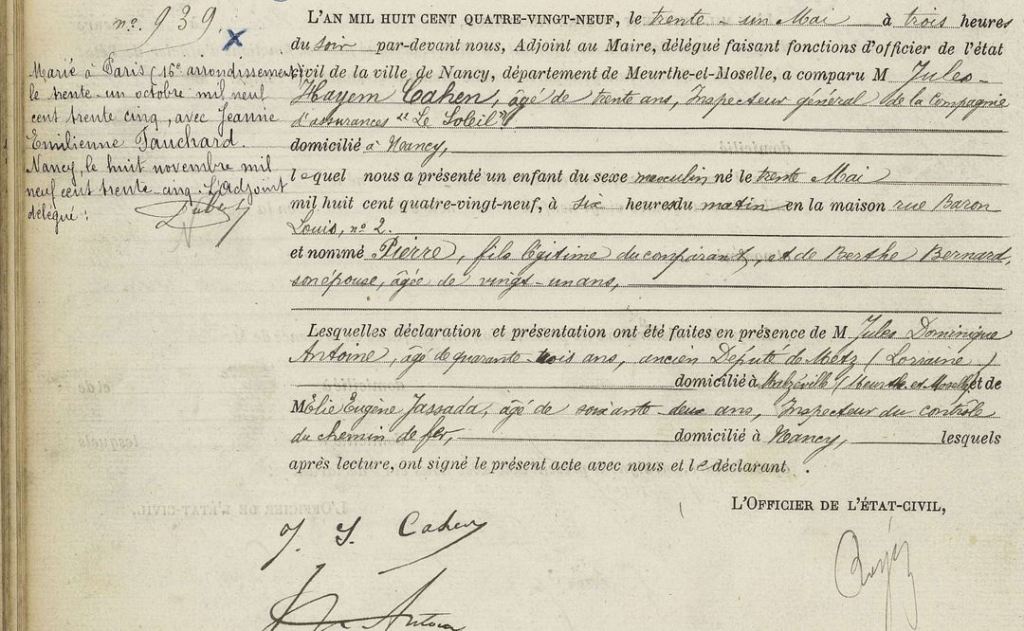 n°. 939.
Marié à Paris (16e arrondissement)
le trente-un octobre mil neuf
cent trente cinq, avec Jeanne
Emilienne Fauchard.
Nancy, le huit novembre mil
neuf cent trente-cinq. L'adjoint
délégué :
L'AN MIL HUIT CENT QUATRE-VINGT-NEUF, le trente-un Mai à trois heures
du soir par-devant nous, Adjoint au Maire, délégué faisant fonctions d'officier de l'état
civil de la ville de Nancy, département de Meurthe-et-Moselle, a comparu M Jules-
Hayem Cahen, âgé de trente ans, Inspecteur général de la Compagnie
d'assurances "Le Soleil"
domicilié à Nancy,
lequel nous a présenté un enfant du sexe masculin né le trente Mai
mil huit cent quatre-vingt-neuf, à six heures du matin en la maison rue Baron
Louis, n° 2.
et nommé Pierre, fils légitime du comparant, et de Berthe Bernard,
son épouse, âgée de vingt-un ans,
Lesquelles déclaration et présentation ont été faites en présence de M Jules Dominique
Antoine, âgé de quarante-trois ans, ancien Député de Metz (Lorraine)
domicilié à Malzéville (Meurthe et Moselle) et de
M Elie Eugène Jassada, âgé de soixante-deux ans, Inspecteur du contrôle
du chemin de fer, domicilié à Nancy, lesquels
après lecture, ont signé le présent acte avec nous et le déclarant.
L'OFFICIER DE L'ÉTAT-CIVIL,
J. H. Cahen
Antoine